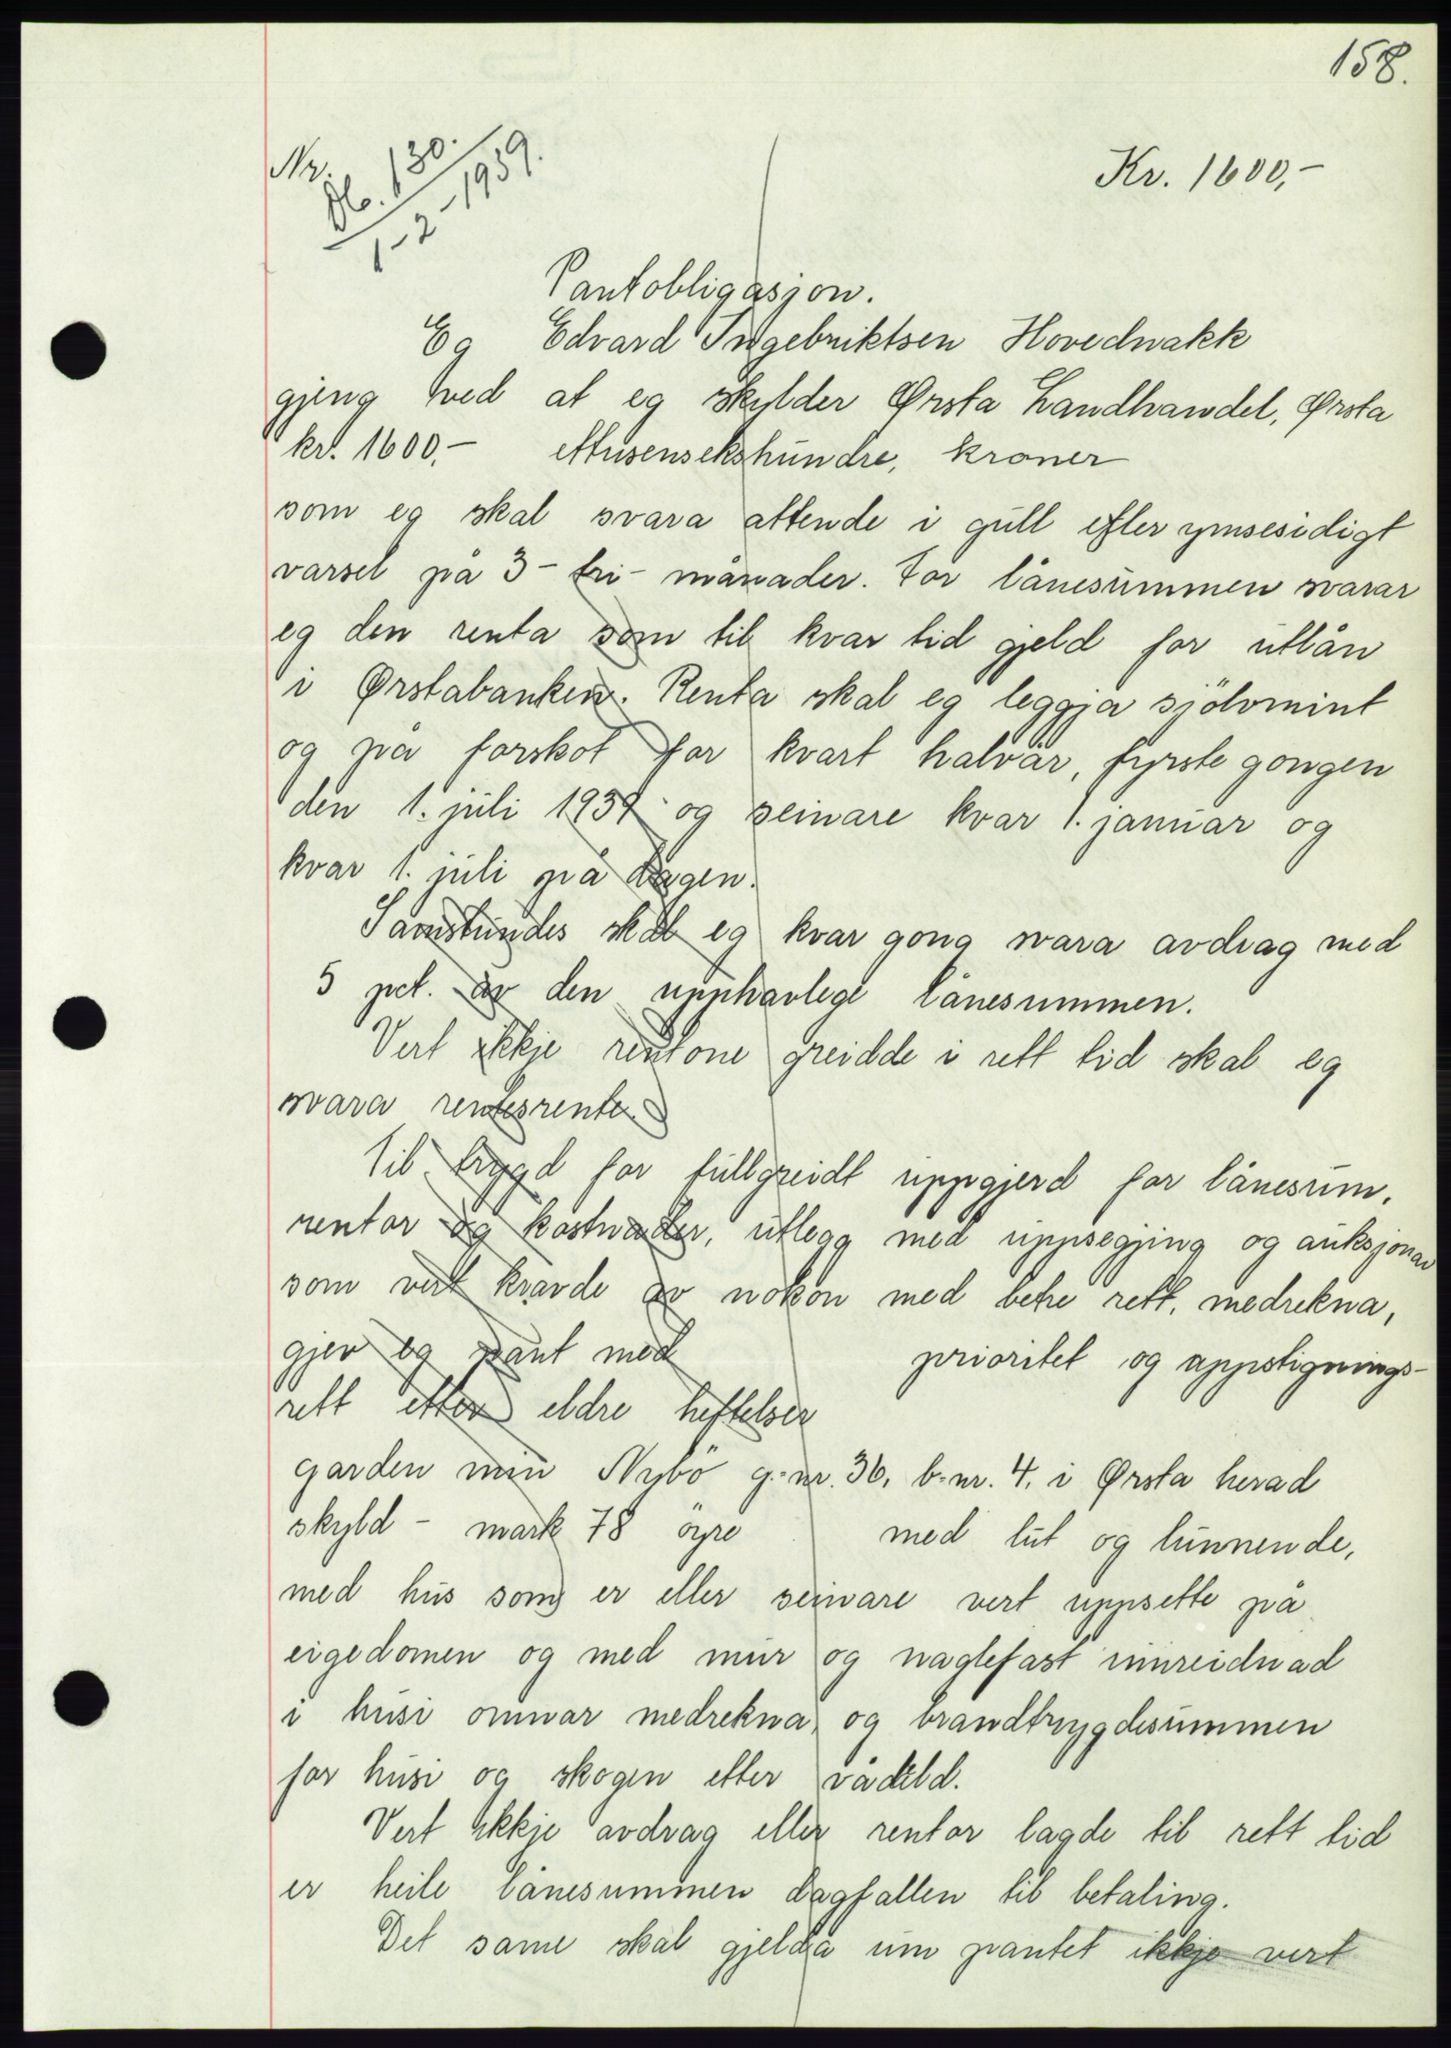 158.
Nr.
Db. 130.
1-2-1939.
Kr. 1600,-
Pantobligasjon.
Eg Edvard Ingebriktsen Hovednakk
gjeng ved at eg skylder Ørsta Landhandel, Ørsta
kr. 1600,- ettusensekshundre, kroner
som eg skal svara attende i gull efter ymsesidigt
varsel på 3 - tri - månader. For lånesummen svarar
eg den renta som til kvar tid gjeld for utlån
i Ørstabanken. Renta skal eg leggja sjölvmint
og på forskot for kvart halvår, fyrste gongen
den 1. juli 1939 og seinare kvar 1. januar og
kvar 1. juli på dagen.
Samstundes skal eg kvar gong svara avdrag med
5 pct. av den upphavlege lånesummen.
Vert ikkje rentone greidde i rett tid skal eg
svara rentesrente.
Til trygd for fullgreidt uppgjerd for lånesum,
rentor og kostnader, utlegg med uppsegjing og auksjonar
som vert kravde av nokon med betre rett, medrekna,
gjev eg pant med prioritet og uppstignings-
rett etter eldre heftelser
garden min Nybö g.-nr. 36, b.-nr. 4. i Ørsta herad
skyld - mark 78 öyre med lut og lunnende,
med hus som er eller seinare vert uppsette på
eigedomen og med mur og naglefast innreidnad
i husi omnar medrekna, og brandtrygdesummen
for husi og skogen etter vådeld.
Vert ikkje avdrag eller rentor lagde til rett tid
er heile lånesummen dagfallen til betaling.
Det same skal gjelda um pantet ikkje vert